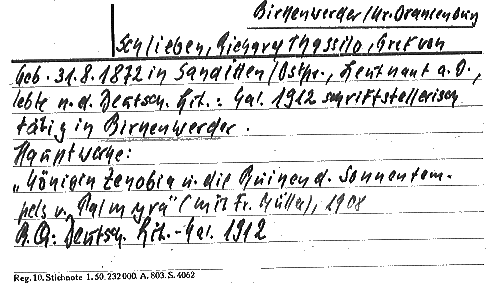 Birkenwerder/Kr. Oranienburg
Schlieben, Richard Thassilo, Graf von
Geb. 31.8.1872 in Sanditten/Ostpr., Leutnant a.D.,
lebte n. d. Deutsch. Lit.: Kal. 1912 schriftstellerisch
tätig in Birkenwerder.
Hauptwerke:
„Königin Zenobia u. die Ruinen d. Sonnentem-
pels v. Palmyra" (mit Fr. Hülla), 1908
B.Q: Deutsch. Lit.-Kal. 1912
Reg. 10. Stichnote 1. 50. 232000. A. 803. S. 4062